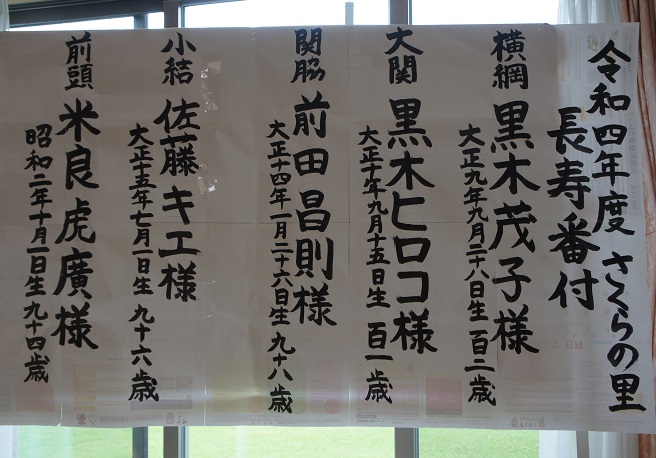 令和四年度 さくらの里
長寿番付
横綱 黒木茂子様
大正九年九月二十八日生 百二歳
大関 黒木ヒロコ様
大正十年九月十五日生 百一歳
関脇 前田昌則様
大正十四年一月二十六日生 九十八歳
小結 佐藤キエ様
大正十五年七月一日生 九十六歳
前頭 米良虎廣様
昭和二年十月一日生 九十四歳